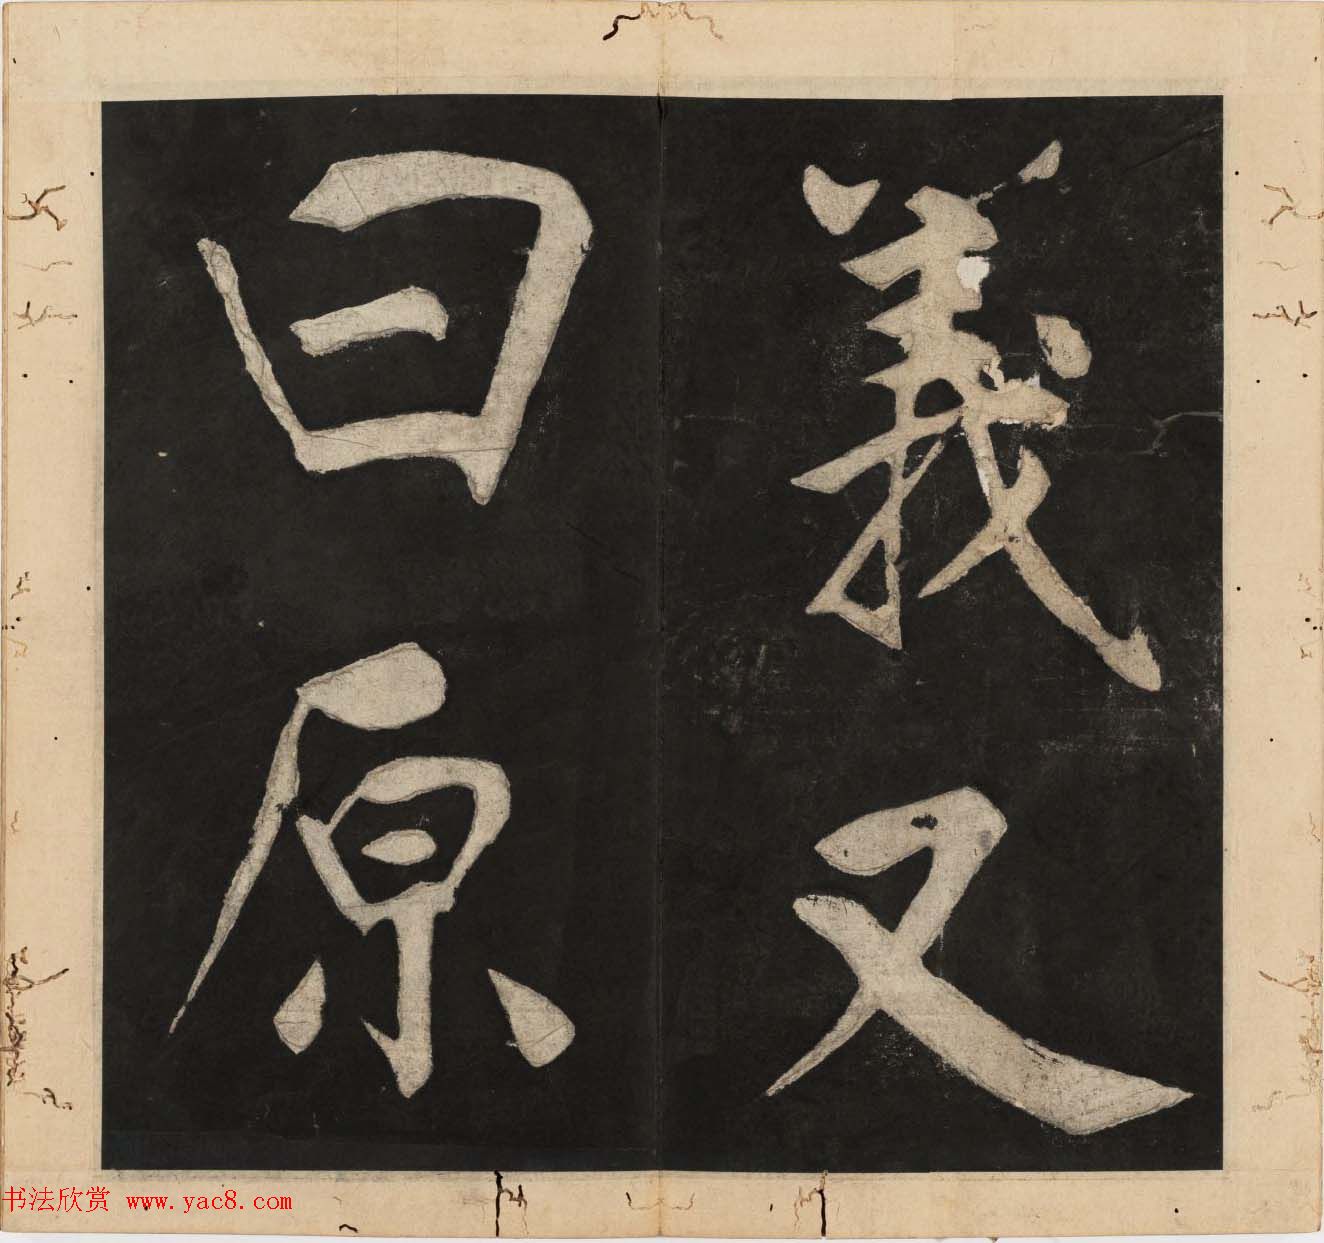 義又
曰原
书法欣赏 www.yac8.com